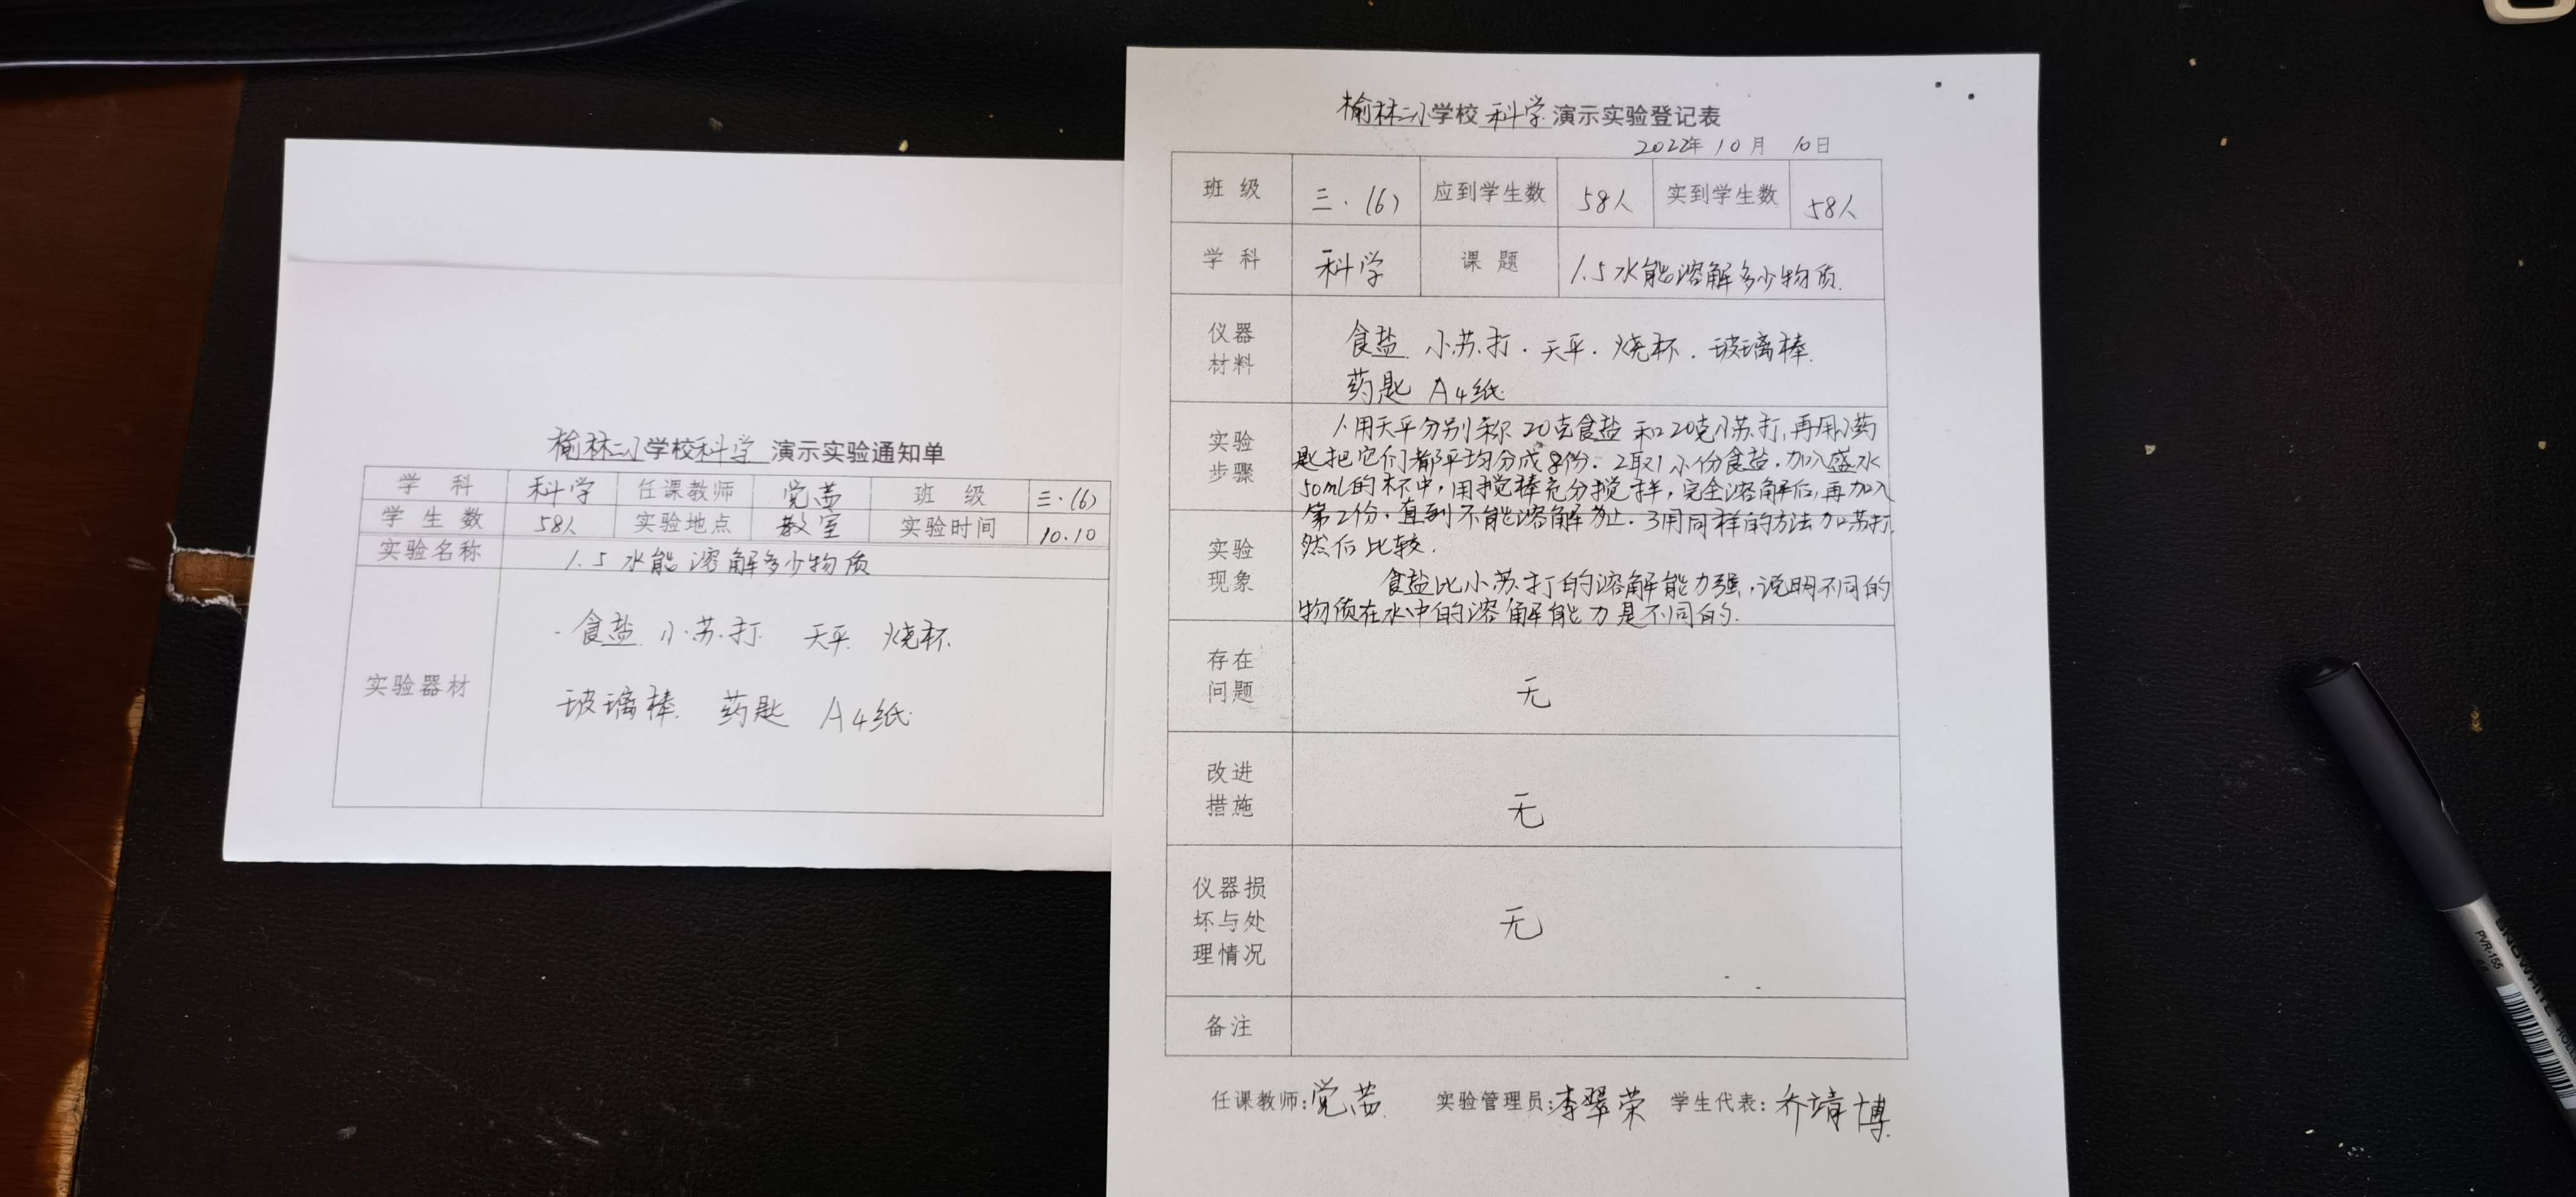 榆林二小学校科学 演示实验通知单
学 科 科学 任课教师 党茜 班 级 三·(6)
学 生 数 58人 实验地点 教室 实验时间 10.10
实验名称 1.5 水能溶解多少物质
实验器材
食盐 小苏打 天平 烧杯
玻璃棒 药匙 A4纸
榆林二小学校 科学 演示实验登记表
2022年 10月 10日
班 级 三·(6) 应到学生数 58人 实到学生数 58人
学 科 科学 课 题 1.5 水能溶解多少物质
仪器
材料
食盐 小苏打 · 天平 · 烧杯 · 玻璃棒
药匙 A4纸
实验
步骤
1.用天平分别称20克食盐和20克小苏打,再用小药
匙把它们都平均分成8份. 2取1小份食盐,加入盛水
50ml的杯中,用搅棒充分搅拌,完全溶解后,再加入
第2份,直到不能溶解为止. 3用同样的方法加苏打,
然后比较.
实验
现象
食盐比小苏打的溶解能力强,说明不同的
物质在水中的溶解能力是不同的.
存在
问题
无
改进
措施
无
仪器损
坏与处
理情况
无
备注
任课教师:党茜 实验管理员:李翠荣 学生代表:乔靖博
SNOWHITE
PVR-155